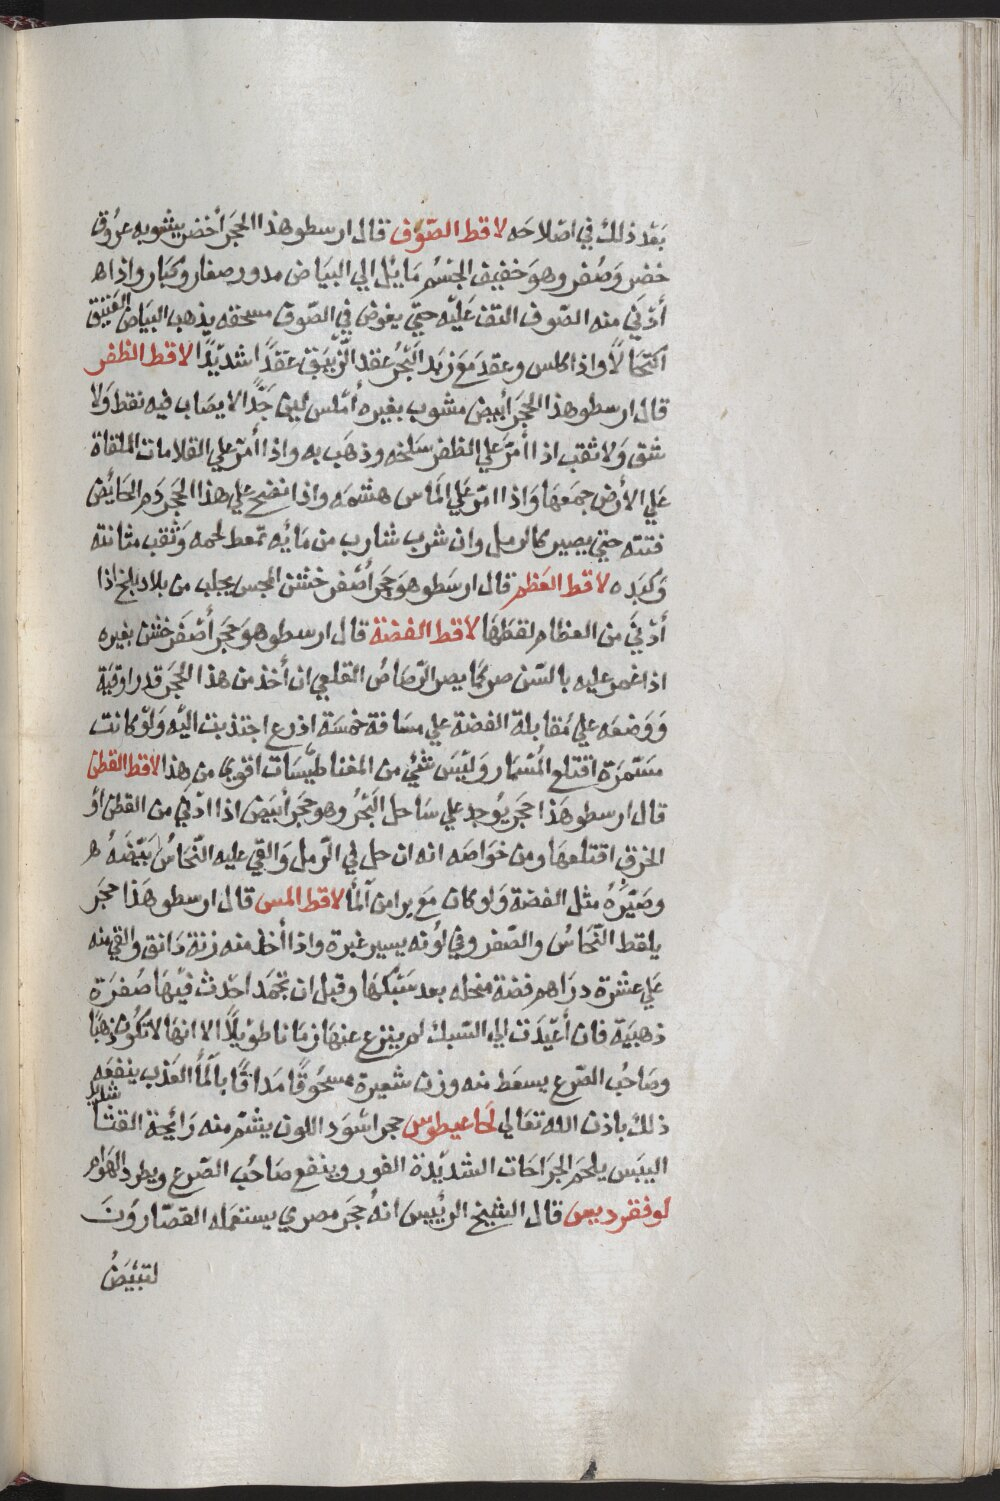 بَعْد ذلك في اصْلاحَه لاقط الصّوف قال ارسطو هذا الحجَر أخضر يشوبه عرُوق
خضر وصُفر وهوَ خفيف الجسْم مَايْل الي البيَاض مدور صغار وكبَار واذا
أدْني منه الصّوف التف عَليْه حتيّ يغوصْ في الصّوف مسحقه يذهب البيَاض العَتيْق
اكتحَالاً واذا كلس وعقد مَع زبَد البَحْر عقد الزّيبَق عَقدًا شديْدًا لاقط الظفر
قال ارسطو هذا الحجَر أبيض مشوب بغيره أمْلس ليّن جدًّا لا يصَاب فيه نقط وَلا
شق وَلا ثقب اذا أُمرّ عَلي الظفر سَلخه وذهَب به واذا أُمرّ علي القلامات الملقاة
عَلي الأرْض جمَعهَا وَاذا امرّ عَلي الماس هشمَه واذا نضح علي هذا الحجَر دَم الحَايض
فتته حتيّ يصير كالرمل وان شرب شارب من مَايْه تمّعط لحمه وَتثقب مثانته
وَكبَده لاقط العَظم قال ارسَطو هوَ حجَر أصْفر خشن المجس يجلب من بلاد بلخ اذا
أدْنيَ من العظام لقطهَا لاقط الفضة قال ارسطو هوَ حجَر أصْفَر خشن بغيره
اذا غمز عليه بالسّن صر كما يصر الرّصَاص القلعي ان أخذ من هذا الحجَر قدر اوقيَة
وَوَضعَه علي مُقابلة الفضة علي مسَافة خمسَة اذرع اجتذبت اليْه وَلوْ كانت
مسَمّرَة اقتلع المسْمار وَليْسَ شيْء من المغناطيْسَات اقوي من هذا لاقط القطن
قال ارسطو هَذا حجَر يُوجد علي سَاحل البَحْر وهو حجَر أبيَض اذا ادْني من القطن أو
الخرق اقتلعهَا ومن خوَاصَه انه ان حل في الرّمل وَالقي عليه النّحَاس بَيّضَهُ
وصَيّرَهُ مثل الفضة وَلو كان مَعَ برامن المأ لاقط المس قال ارسطو هَذا حجَر
يلقط النّحَاس والصّفر وفي لوْنه يسير غبرة واذا أخذ منه زنة دَانق والقي منه
عَلي عشرَة درَاهم فضة منحله بعد سَبْكهَا وقبل ان تجمَد احْدث فيْهَا صُفرَة
ذهبيَة فان أُعيْدَت الي السّبك لم ينزع عنهَا زمَانا طوْيلاً الا انهَا لا تكُون ذهبًا
وصَاحب الصّرع يسعَط منه وزن شعيرة مسْحُوقًا مَدافًا بالمأ العَذب ينفعَه
ذلك باذن الله تعَالي لحاعيطوس حجر اسْوَد اللون يشمّ منه رَايْحَة القثا شديد
اليبَس يلحَم الجرَاحَات الشديْدة الغور وينفع صَاحب الصّرع ويطرد الهَوام
لوفقرديس قال الشيخ الرئيس انهُ حجَر مصري يستعمَله القصّارُونَ
لتبْيَض